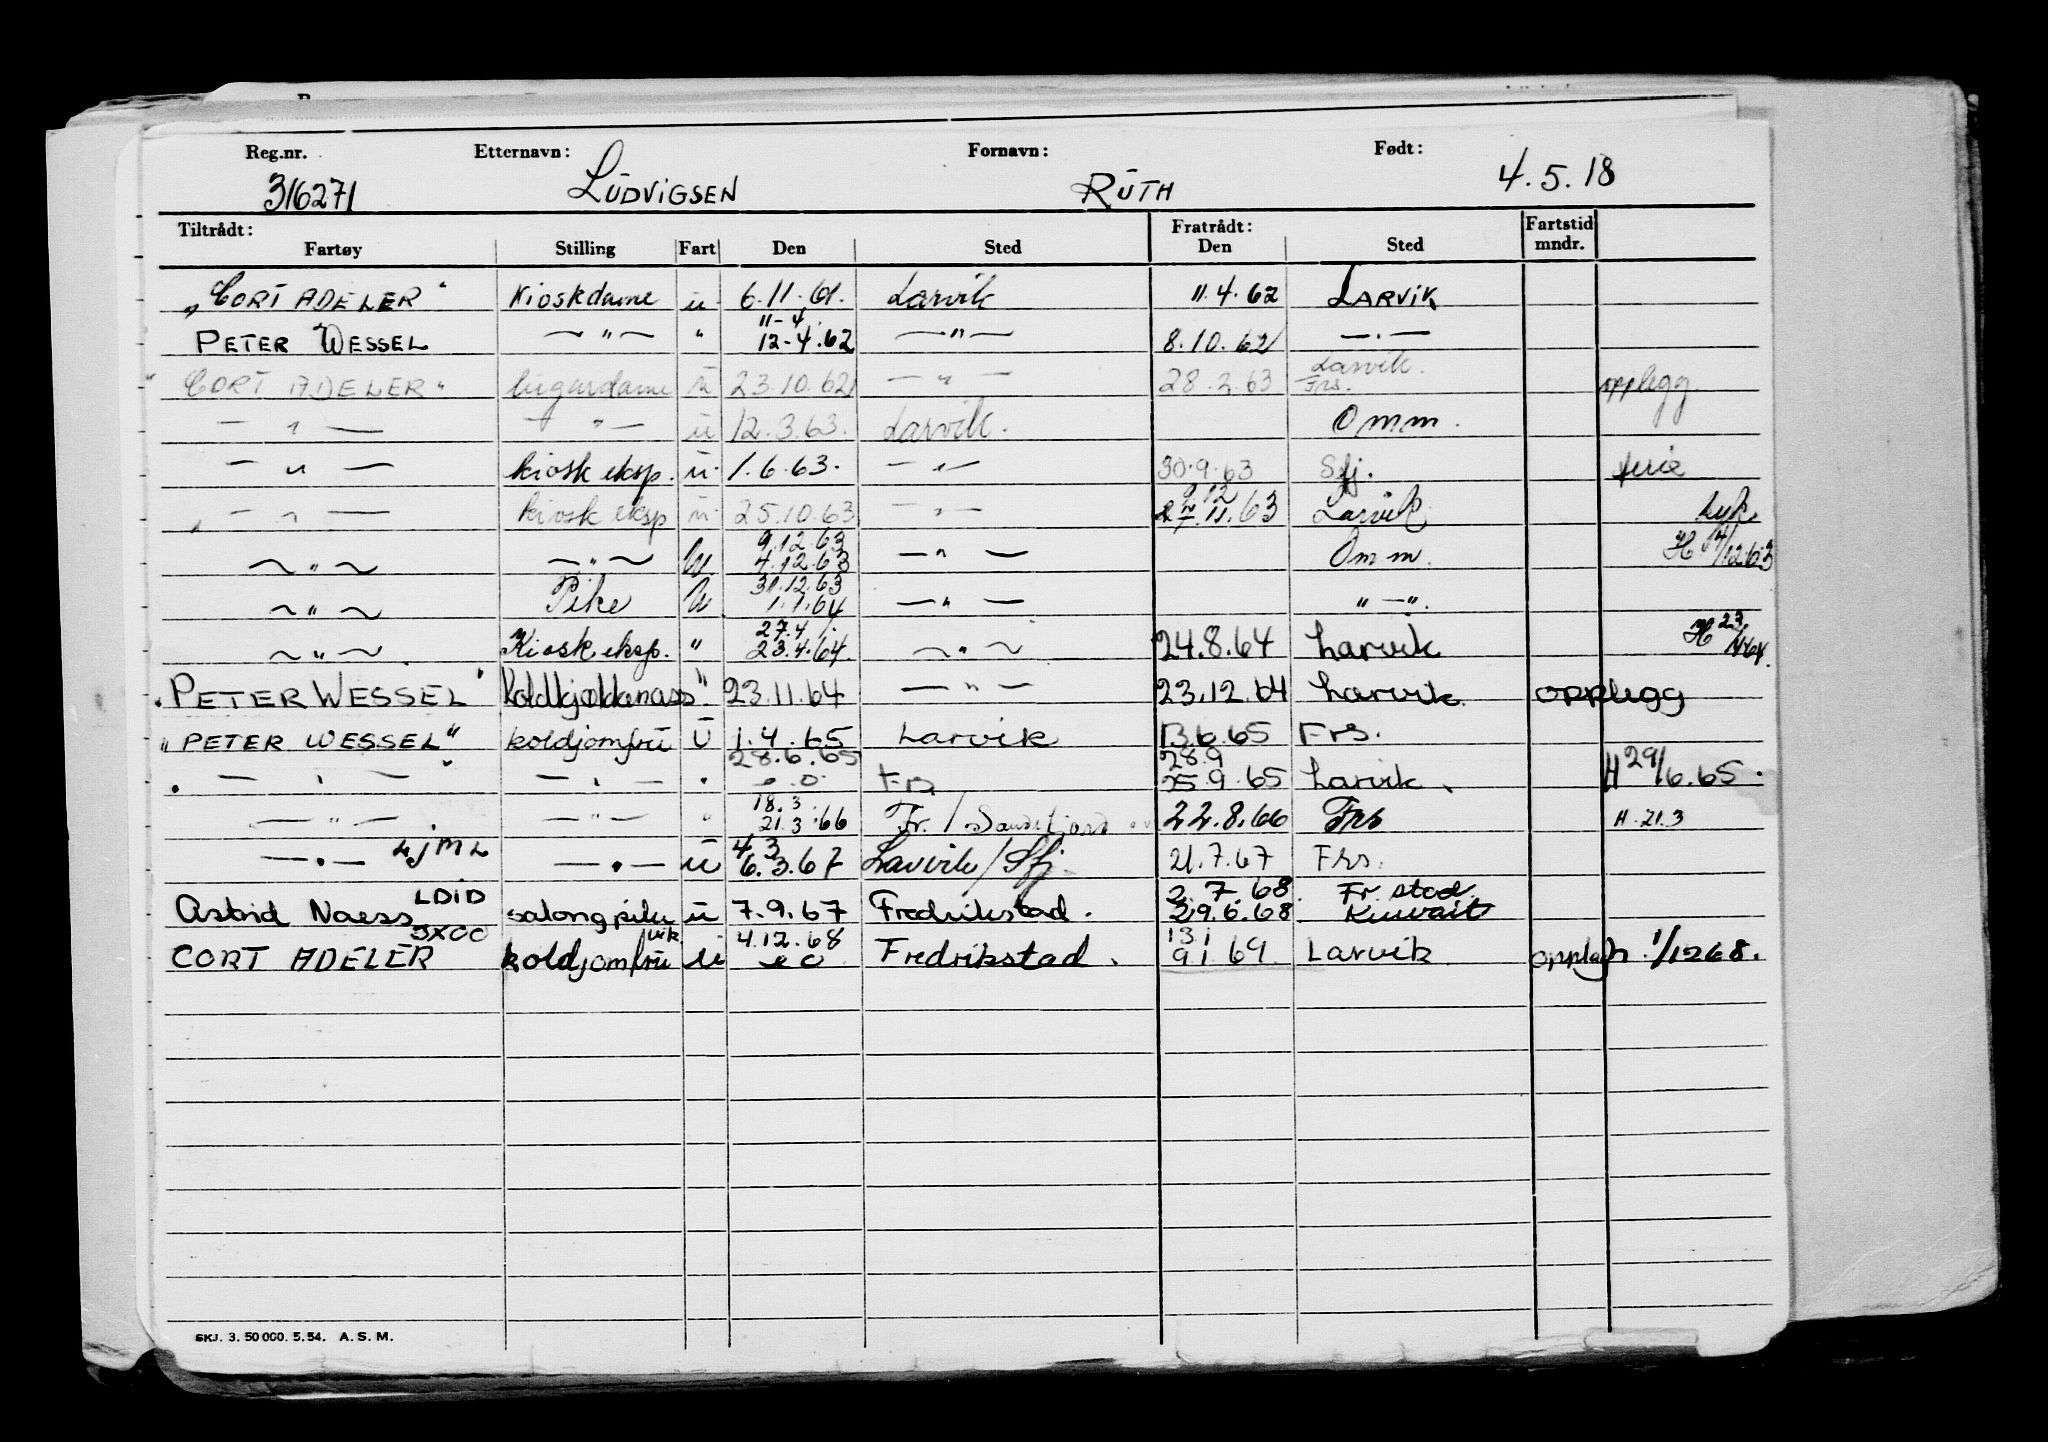 Reg.nr. Etternavn: Fornavn: Født:
316271 LUDVIGSEN RUTH 4.5.18
Tiltrådt: Fratrådt: Fartstid
Fartøy Stilling Fart Den Sted Den Sted mndr.
"CORT ADELER" Kioskdame u 6.11.61. Larvik 11.4.62 LARVIK
11-4
PETER WESSEL — " — " 12-4.62 — " — 8.10.62 — . —
"CORT ADELER" lugardame u 23.10.62 — " — 28.2.63 Larvik. Frs. opplegg
— " — — " — u 12.3.63. Larvik. Omm.
— " — kiosk eksp. u. 1.6.63. — " — 30.9.63 Sfj. ferie
9.12
— " — kiosk eksp u 25.10.63 — " — .11.63 Larvik. syk
9.12.63
— " — — " — U. 4.12.63 — " — Omm. H 14/12.63
31.12.63
— " — Pike U 1.1.64 — " — " — ".
27.4
— " — Kiosk eksp. " 23.4.64. — " — 24.8.64 Larvik H 23/4 64.
"PETER WESSEL" " 23.11.64 — " — 23.12.64 Larvik opplegg
"PETER WESSEL" koldjomfru U 1.4.65 Larvik 13.6.65 Frs.
28.6.65 28.9
" — " — " — " — " Frs 25.9.65 Larvik. H 29/6.65.
18.3
— " — — " — " 21.3.66 Fr./Sandefjord 22.8.66 Frs H.21.3
LJML 4.3
— " — — " — u 6.3.67 Larvik/Sfj. 21.7.67 Frs.
LDID 2.7.68 Fr.stad
Astrid Naess salongpike u 7.9.67 Fredrikstad. 29.6.68 Kuwait
JXCC vik 4.12.68 13.1
CORT ADELER koldjomfru u Fredrikstad. 9.1.69. Larvik opplegg h. 1/1268.
SKJ. 3. 50 000. 5.54. A. S. M.